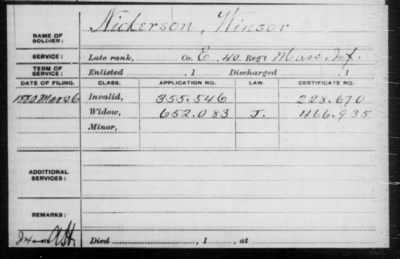 NAME OF SOLDIER: Nickerson, Winsor
SERVICE: Late rank, Co. E, 40 Reg't Mass. Inf.
TERM OF SERVICE: Enlisted , 1 Discharged , 1
DATE OF FILING. CLASS. APPLICATION NO. LAW. CERTIFICATE NO.
1880 Mar 26 Invalid, 355.546 228.670
Widow, 652.083 J. 466.935
Minor,
ADDITIONAL SERVICES:
REMARKS:
Died , 1 , at